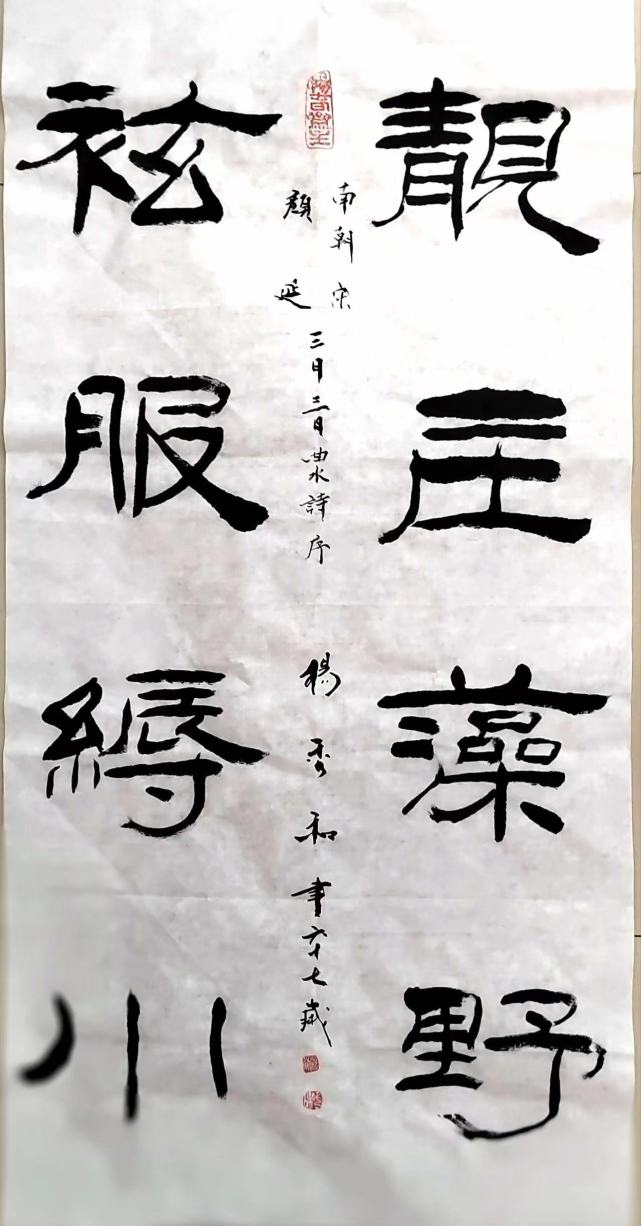 靚庄藻野
南朝宋
顏延
三月三日曲水詩序
楊秀和書六十七歲
袨服縟川